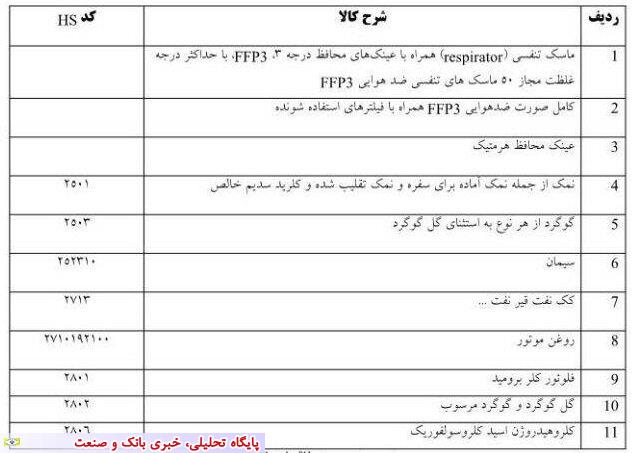 ردیف شرح کالا کد HS
1 ماسک تنفسی (respirator) همراه با عینک‌های محافظ درجه ۳، FFP3، با حداکثر درجه
غلظت مجاز ۵۰ ماسک های تنفسی ضد هوایی FFP3
2 کامل صورت ضدهوایی FFP3 همراه با فیلترهای استفاده شونده
3 عینک محافظ هرمتیک
4 نمک از جمله نمک آماده برای سفره و نمک تقلیب شده و کلرید سدیم خالص ۲۵۰۱
5 گوگرد از هر نوع به استثنای گل گوگرد ۲۵۰۳
6 سیمان ۲۵۲۳۱۰
7 کک نفت قیر نفت ... ۲۷۱۳
8 روغن موتور ۲۷۱۰۱۹۲۱۰۰
9 فلوئور کلر برومید ۲۸۰۱
10 گل گوگرد و گوگرد مرسوب ۲۸۰۲
11 کلروهیدروژن اسید کلروسولفوریک ۲۸۰۶
پایگاه تحلیلی، خبری بانک و صنعت